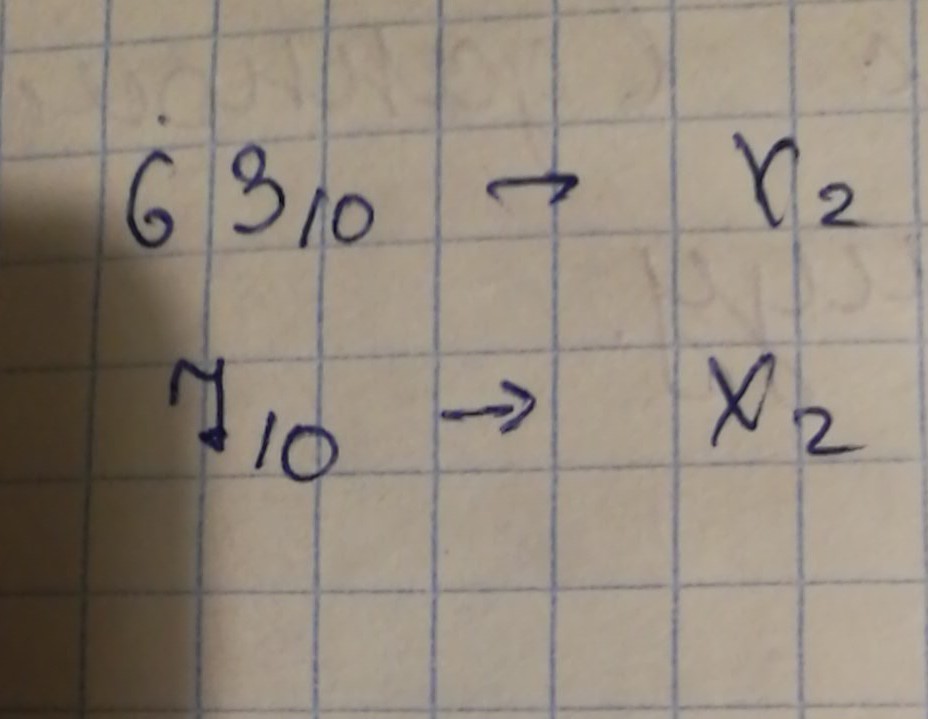 63₁₀ → Y₂
7₁₀ → X₂